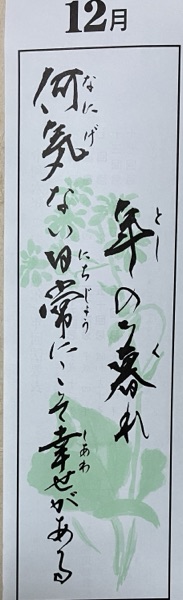 12月
年の暮れ
とし
く
何気ない日常にこそ幸せがある
なにげ
にちじょう
しあわ